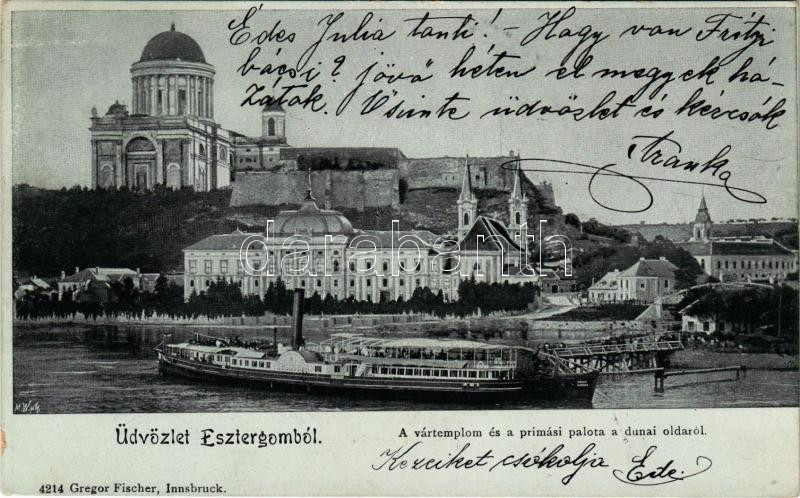 Édes Julia tanti! - Hogy van Fritzi
bácsi? jövő héten el megyek há-
zátok. Őszinte üdvözlet és kézcsók
Franka
databanth
M. W. u. K.
Üdvözlet Esztergomból.
A vártemplom és a primási palota a dunai oldaról.
Kezeiket csókolja Ede.
4214 Gregor Fischer, Innsbruck.